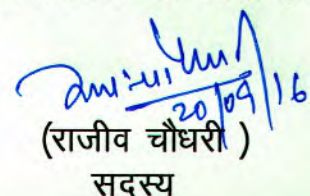 20/09/16
(राजीव चौधरी )
सदस्य